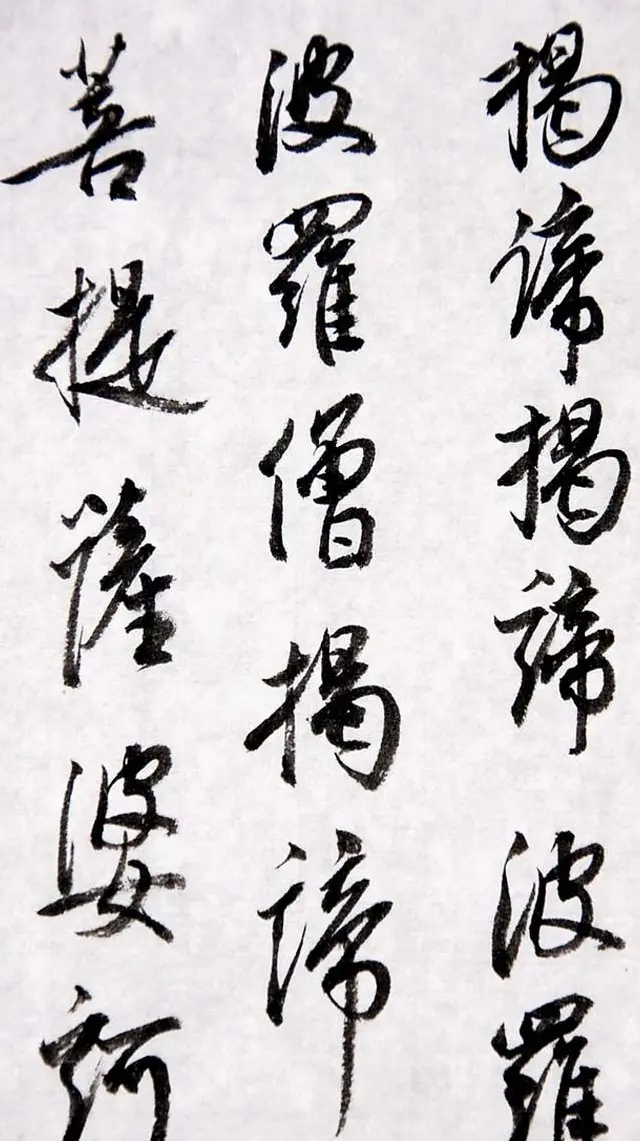 揭諦揭諦波羅
波羅僧揭諦
菩提薩婆訶